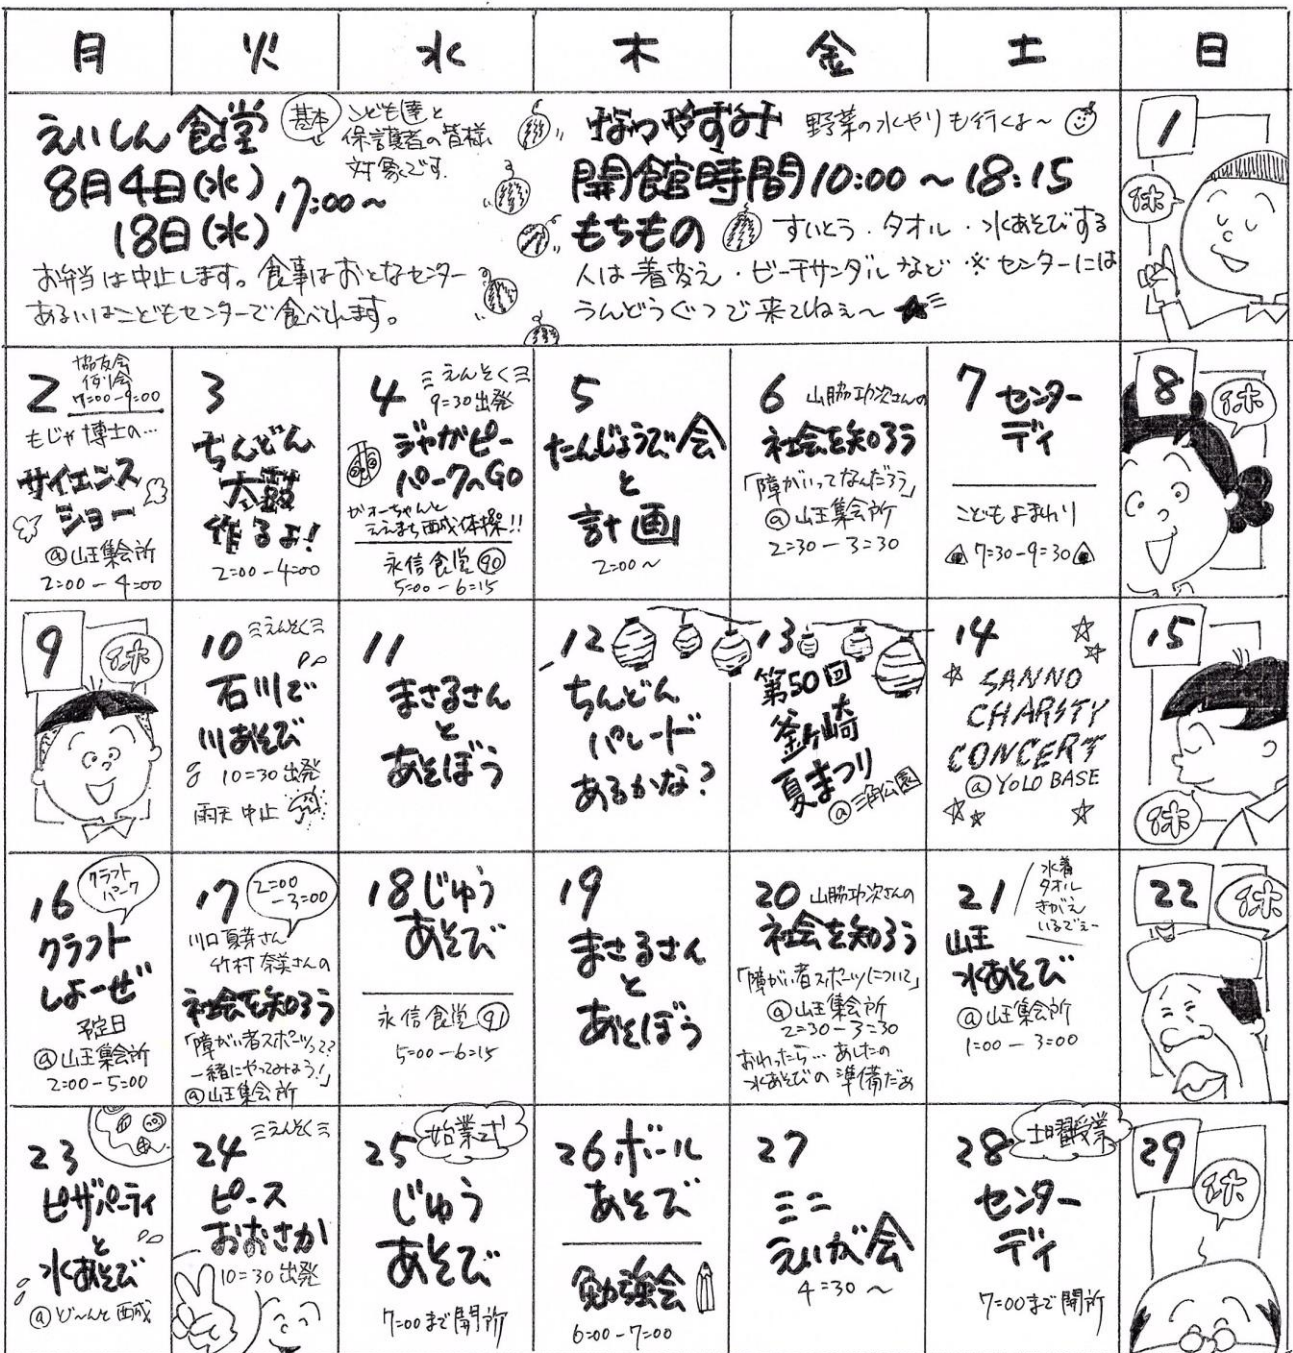 月 火 水 木 金 土 日
えいしん食堂
基本
こども達と
保護者の皆様
対象です。
8月4日(水)
18日(水)
17:00～
お弁当は中止します。食事はおとなセンター
あるいはこどもセンターで食べれます。
なつやすみ
野菜の水やりも行くよ～
開館時間10:00～18:15
もちもの
すいとう・タオル・水あそびする
人は着変え・ビーチサンダルなど ※センターには
うんどうぐつで来てねぇ～
1
休
2
協友会
例会
7:00-9:00
もじゃ博士の…
サイエンス
ショー
@山王集会所
2:00-4:00
3
ちんどん
太鼓
作るよ!
2:00-4:00
4
えんそく
9:30出発
ジャガピー
パークへGO
ぴオーちゃんと
ええまち西成体操!!
永信食堂90
5:00-6:15
5
たんじょうび会
と
計画
2:00～
6
山脇功次さんの
社会を知ろう
「障がいってなんだろう」
@山王集会所
2:30-3:30
7
センター
デイ
こどもよまわり
7:30-9:30
8
休
9
休
10
えんそく
石川で
川あそび
10:30出発
雨天中止
11
まさるさん
と
あそぼう
12
ちんどん
パレード
あるかな?
13
第50回
釜ヶ崎
夏まつり
@三角公園
14
SANNO
CHARITY
CONCERT
@YOLO BASE
15
休
16
クラフト
パーク
クラフト
しよーぜ
予定日
@山王集会所
2:00-5:00
17
2:00
-3:00
川口夏芽さん
竹村奈美さんの
社会を知ろう
「障がい者スポーツって?
一緒にやってみよう!」
@山王集会所
18
じゆう
あそび
永信食堂91
5:00-6:15
19
まさるさん
と
あそぼう
20
山脇功次さんの
社会を知ろう
「障がい者スポーツについて」
@山王集会所
2:30-3:30
おわったら…あしたの
水あそびの準備だぁ
21
水着
タオル
きがえ
いるでぇー
山王
水あそび
@山王集会所
1:00-3:00
22
休
23
ピザパーティ
と
水あそび
@ど～んと西成
24
えんそく
ピース
おおさか
10:30出発
25
始業式
じゆう
あそび
7:00まで開所
26
ボール
あそび
勉強会
6:00-7:00
27
ミニ
えいが会
4:30～
28
土曜授業
センター
デイ
7:00まで開所
29
休